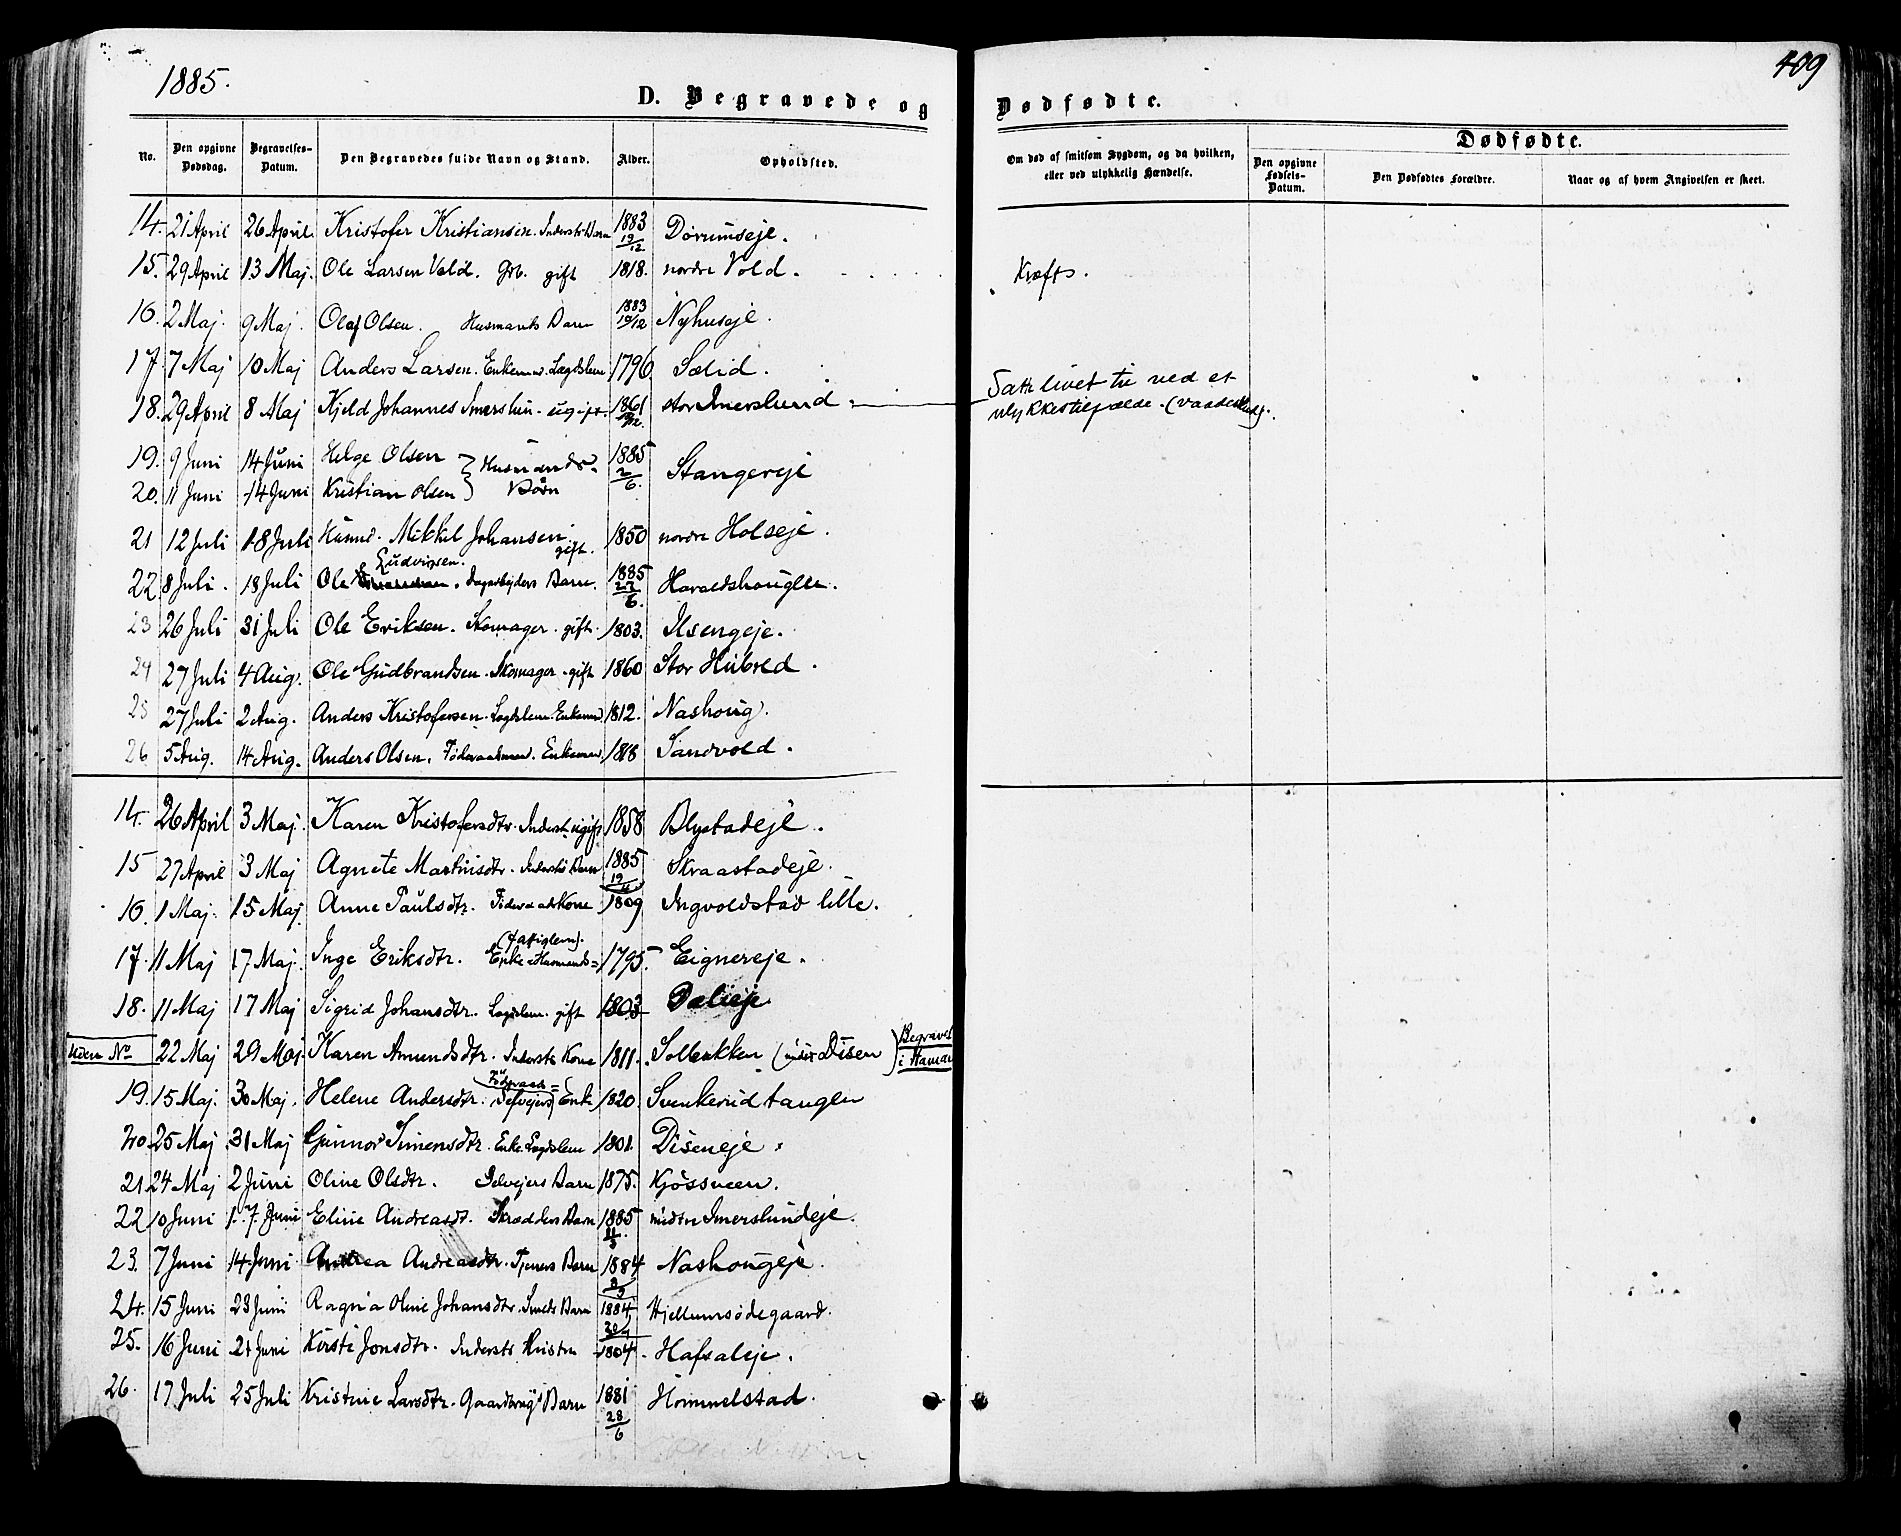 1885.
409
D. Begravede og
Dødfødte.
No. | Den opgivne Dødsdag. | Begravelses-Datum. | Den Begravedes fulde Navn og Stand. | Alder. | Opholdsted. | Om død af smitsom Sygdom, og da hvilken, eller ved ulykkelig Hændelse. | Dødfødte. | Den opgivne Fødsels-Datum. | Den Dødfødtes Forældre. | Naar og af hvem Angivelsen er skeet.
14. 21 April 26 April. Kristofer Kristiansen. Indersts Barn 1883 19/12 Dørumseje.
15. 29 April 13 Maj. Ole Larsen Vold. Grb. gift 1818. nordre Vold. Kræft.
16. 2 Maj. 9 Maj. Olaf Olsen. Husmands Barn 1883 /12 Nyhuseje.
17. 7 Maj 10 Maj Anders Larsen. Enkemd. Lægdslem 1796. Sælid.
18. 29 April 8 Maj Kjeld Johannes Imerslun. ugift. 1861 /12. stor Imerslund. Satte livet til ved et
ulykkestilfælde. (vaadeskud).
19. 9 Juni 14 Juni Helge Olsen } Husmands- 1885 2/6. Stangereje
20. 11 Juni 14 Juni Kristian Olsen } Børn
21 12 Juli 18 Juli Husmd. Mikkel Johansen. gift. 1850 nordre Holseje.
22. 8 Juli. 18 Juli Ole Ludvigsen. Dagarbejders Barn. 1885 27/6. Haraldshaugen.
23 26 Juli 31 Juli Ole Eriksen. Skomager. gift. 1803. Ilsengeje.
24 27 Juli 4 Aug. Ole Gudbrandsen. Skomager. gift 1860 Stor Hubred.
25 27 Juli 2 Aug. Anders Kristofersen. Lægdslem. Enkemd 1812. Nashoug.
26 5 Aug. 14 Aug. Anders Olsen. Føderaadsmand. Enkemd. 1818 Sandvold.
14. 26 April 3 Maj. Karen Kristofersdtr. Inderst. ugift 1858 Blystadeje.
15 27 April 3 Maj Agnete Martinisdtr. Inderstes Barn 1885 19/4 Skraastadeje.
16. 1 Maj. 15 Maj. Anne Paulsdtr. Føderaadskone 1809 Ingvoldstad lille.
17. 11 Maj 17 Maj. Inge Eriksdtr. (fattiglem). Enke Husmands= 1795. Eignereje.
18. 11 Maj 17 Maj Sigrid Johansdtr. Lægdslem. gift 1803 Dælieje
Uden No 22 Maj 29 Maj. Karen Amundsdtr. Indersts Kone 1811. Solbakken (under Disen) Begravet i Hamar
19. 15 Maj. 30 Maj. Helene Andersdtr. Føderaads= Selvejers Enke 1820. Svenkerud tangen
20. 25 Maj 31 Maj Gunnor Simensdtr. Enke. Lægdslem 1801. Diseneje.
21 24 Maj 2 Juni Oline Olsdtr. Selvejers Barn 1875. Kjøssveen.
22 10 Juni 17 Juni Eline Andreasdt. Skrædders Barn 1885 11/3 midtre Imerslundeje.
23. 7 Juni 14 Juni Andrea Andreasdtr. Tjeners Barn 1884 Nashougeje.
24. 15 Juni 23 Juni Ragna Oline Johansdtr. Smeds Barn 1884 30/ Hjellumsødegaard.
25. 16 Juni 21 Juni Kirsti Jonsdtr. Inderste Hustru 1804. Hafsaleje.
26. 17 Juli 25 Juli Kristine Larsdtr. Gaardbrugs Barn 1881 28/6 Hommelstad.